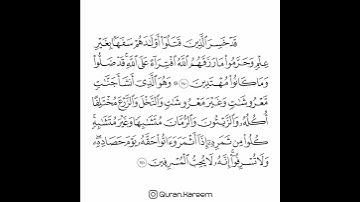 قَدْ خَسِرَ ٱلَّذِينَ قَتَلُوٓا۟ أَوْلَـٰدَهُمْ سَفَهًۢا بِغَيْرِ
عِلْمٍ وَحَرَّمُوا۟ مَا رَزَقَهُمُ ٱللَّهُ ٱفْتِرَآءً عَلَى ٱللَّهِ ۚ قَدْ ضَلُّوا۟
وَمَا كَانُوا۟ مُهْتَدِينَ ١٤٠ ۞ وَهُوَ ٱلَّذِىٓ أَنشَأَ جَنَّـٰتٍ
مَّعْرُوشَـٰتٍ وَغَيْرَ مَعْرُوشَـٰتٍ وَٱلنَّخْلَ وَٱلزَّرْعَ مُخْتَلِفًا
أُكُلُهُۥ وَٱلزَّيْتُونَ وَٱلرُّمَّانَ مُتَشَـٰبِهًا وَغَيْرَ مُتَشَـٰبِهٍ ۚ
كُلُوا۟ مِن ثَمَرِهِۦٓ إِذَآ أَثْمَرَ وَءَاتُوا۟ حَقَّهُۥ يَوْمَ حَصَادِهِۦ ۖ
وَلَا تُسْرِفُوٓا۟ ۚ إِنَّهُۥ لَا يُحِبُّ ٱلْمُسْرِفِينَ ١٤١
Quran.Kareem